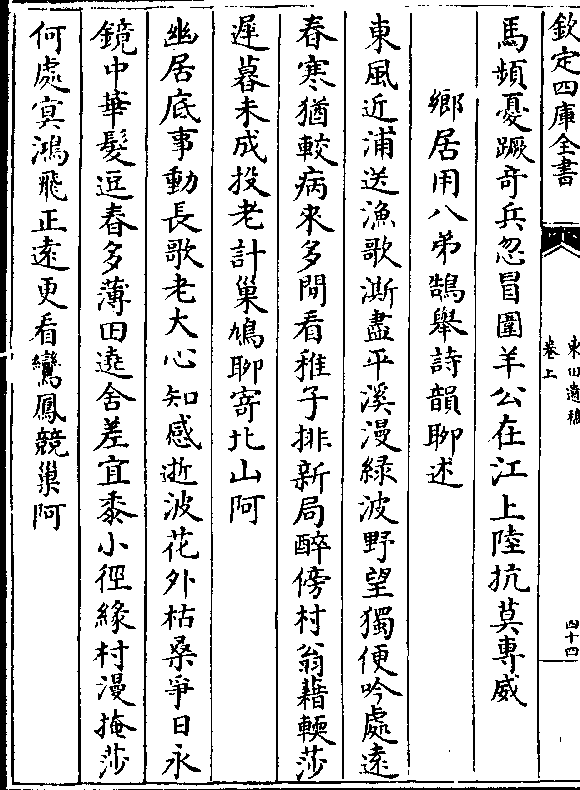 欽定四庫全書
東田遺稿
卷上
四十四
馬頻憂蹶奇兵忽冒圍羊公在江上陸抗莫專威
鄉居用八弟鵠舉詩韻聊述
東風近浦送漁歌澌盡平溪漫綠波野望獨便吟處遠
春寒猶較病來多閒看稚子排新局醉傍村翁藉輭莎
遲暮未成投老計巢鳩聊寄北山阿
幽居底事動長歌老大心知感逝波花外枯桑爭日永
鏡中華髮逗春多薄田遶舍差宜黍小徑緣村漫掩莎
何處冥鴻飛正遠更看鸞鳳競巢阿